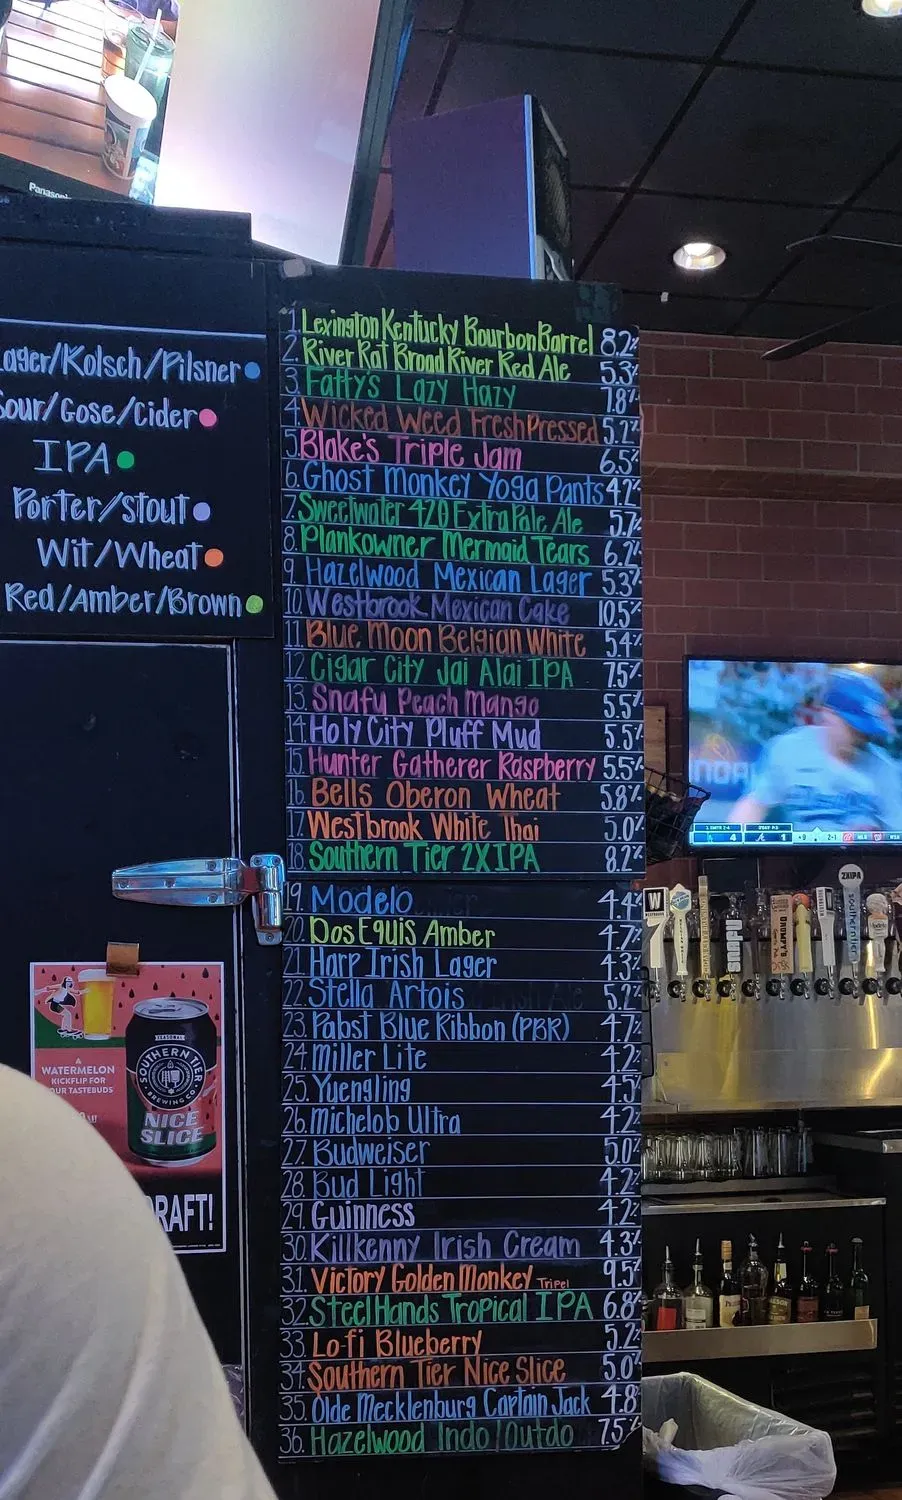 Panasonic
ager/Kolsch/Pilsner
Sour/Gose/Cider
IPA
Porter/Stout
Wit/Wheat
Red/Amber/Brown
1. Lexington Kentucky Bourbon Barrel 8.2%
2. River Rat Broad River Red Ale 5.3%
3. Fatty's Lazy Hazy 7.8%
4. Wicked Weed FreshPressed 5.2%
5. Blake's Triple Jam 6.5%
6. Ghost Monkey Yoga Pants 4.2%
7. Sweetwater 420 Extra Pale Ale 5.7%
8. Plankowner Mermaid Tears 6.2%
9. Hazelwood Mexican Lager 5.3%
10. Westbrook Mexican Cake 10.5%
11. Blue Moon Belgian White 5.4%
12. Cigar City Jai Alai IPA 7.5%
13. Snafu Peach Mango 5.5%
14. Holy City Pluff Mud 5.5%
15. Hunter Gatherer Raspberry 5.5%
16. Bells Oberon Wheat 5.8%
17. Westbrook White Thai 5.0%
18. Southern Tier 2XIPA 8.2%
19. Modelo 4.4%
20. Dos Equis Amber 4.7%
21. Harp Irish Lager 4.3%
22. Stella Artois 5.2%
23. Pabst Blue Ribbon (PBR) 4.7%
24. Miller Lite 4.2%
25. Yuengling 4.5%
26. Michelob Ultra 4.2%
27. Budweiser 5.0%
28. Bud Light 4.2%
29. Guinness 4.2%
30. Killkenny Irish Cream 4.3%
31. Victory Golden Monkey Tripel 9.5%
32. Steel Hands Tropical IPA 6.8%
33. Lo-fi Blueberry 5.2%
34. Southern Tier Nice Slice 5.0%
35. Olde Mecklenburg Captain Jack 4.8%
36. Hazelwood Indo/Outdo 7.5%
A
WATERMELON
KICKFLIP FOR
OUR TASTEBUDS
SOUTHERN TIER
BREWING CO
NICE
SLICE
RAFT!
4
A 1
2-1
SNAFU
2XIPA
southern tier